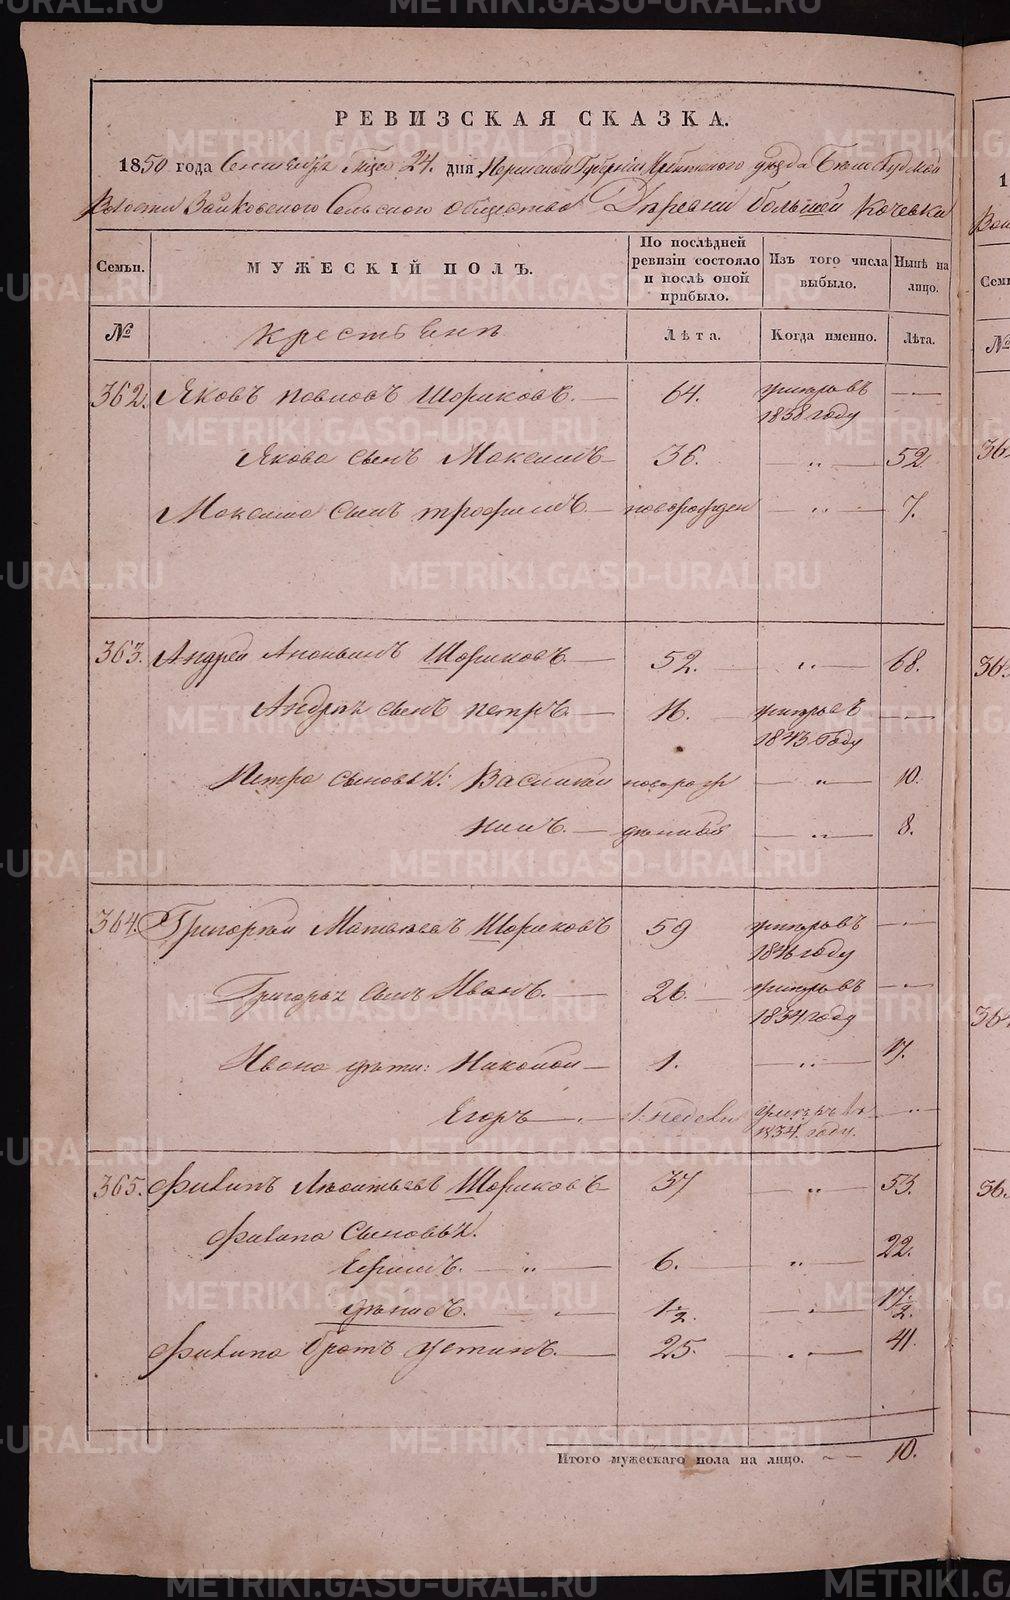 РЕВИЗСКАЯ СКАЗКА.
1850 года Сентября Мца 24. дня Пермской Губерніи Ирбитского уѣзда
Волости Зайковского Сельского общества Деревни большей Кочевки
Семьи. МУЖЕСКІЙ ПОЛЪ. По послѣдней ревизіи состояло и послѣ оной прибыло. Изъ того числа выбыло. Нынѣ на лицо.
№ крестьене Лѣта. Когда именно. Лѣта.
362. Яковъ павловъ Шориковъ. — 64. умеръ въ 1838 году — „ —
Якова сынъ Максимъ — 36. — „ — 52.
Максима сынъ трофимъ — новорожден — „ — 7.
363. Андрей Ананьинъ Шориковъ — 52. — „ — 68.
Андрея сынъ петръ. — 11. — умръ въ 1843 году — „ —
Петра сыновья: Василий новорож — „ — 10.
Нилъ. — денныя — „ — 8.
364. Григорий Матвеевъ Шориковъ 59 умръ въ 1846 году — „ —
Григорья сынъ Иванъ. — 26. — умръ въ 1834 году — „ —
Ивана дети: Николай — 1. — „ — 17.
Егоръ — . 1. недели умръ въ 1834. году. — „ —
365. Филипъ Леонтьевъ Шориковъ — 37 — „ — 53.
Филипа Сыновья:
Ефимъ. — „ — 6. — „ — 22.
Денисъ. — „ — 1 1/2. — „ — 17. 1/2.
Филипа братъ устинъ. — 25. — „ — 41.
Итого мужескаго пола на лицо. — — 10.
METRIKI.GASO-URAL.RU